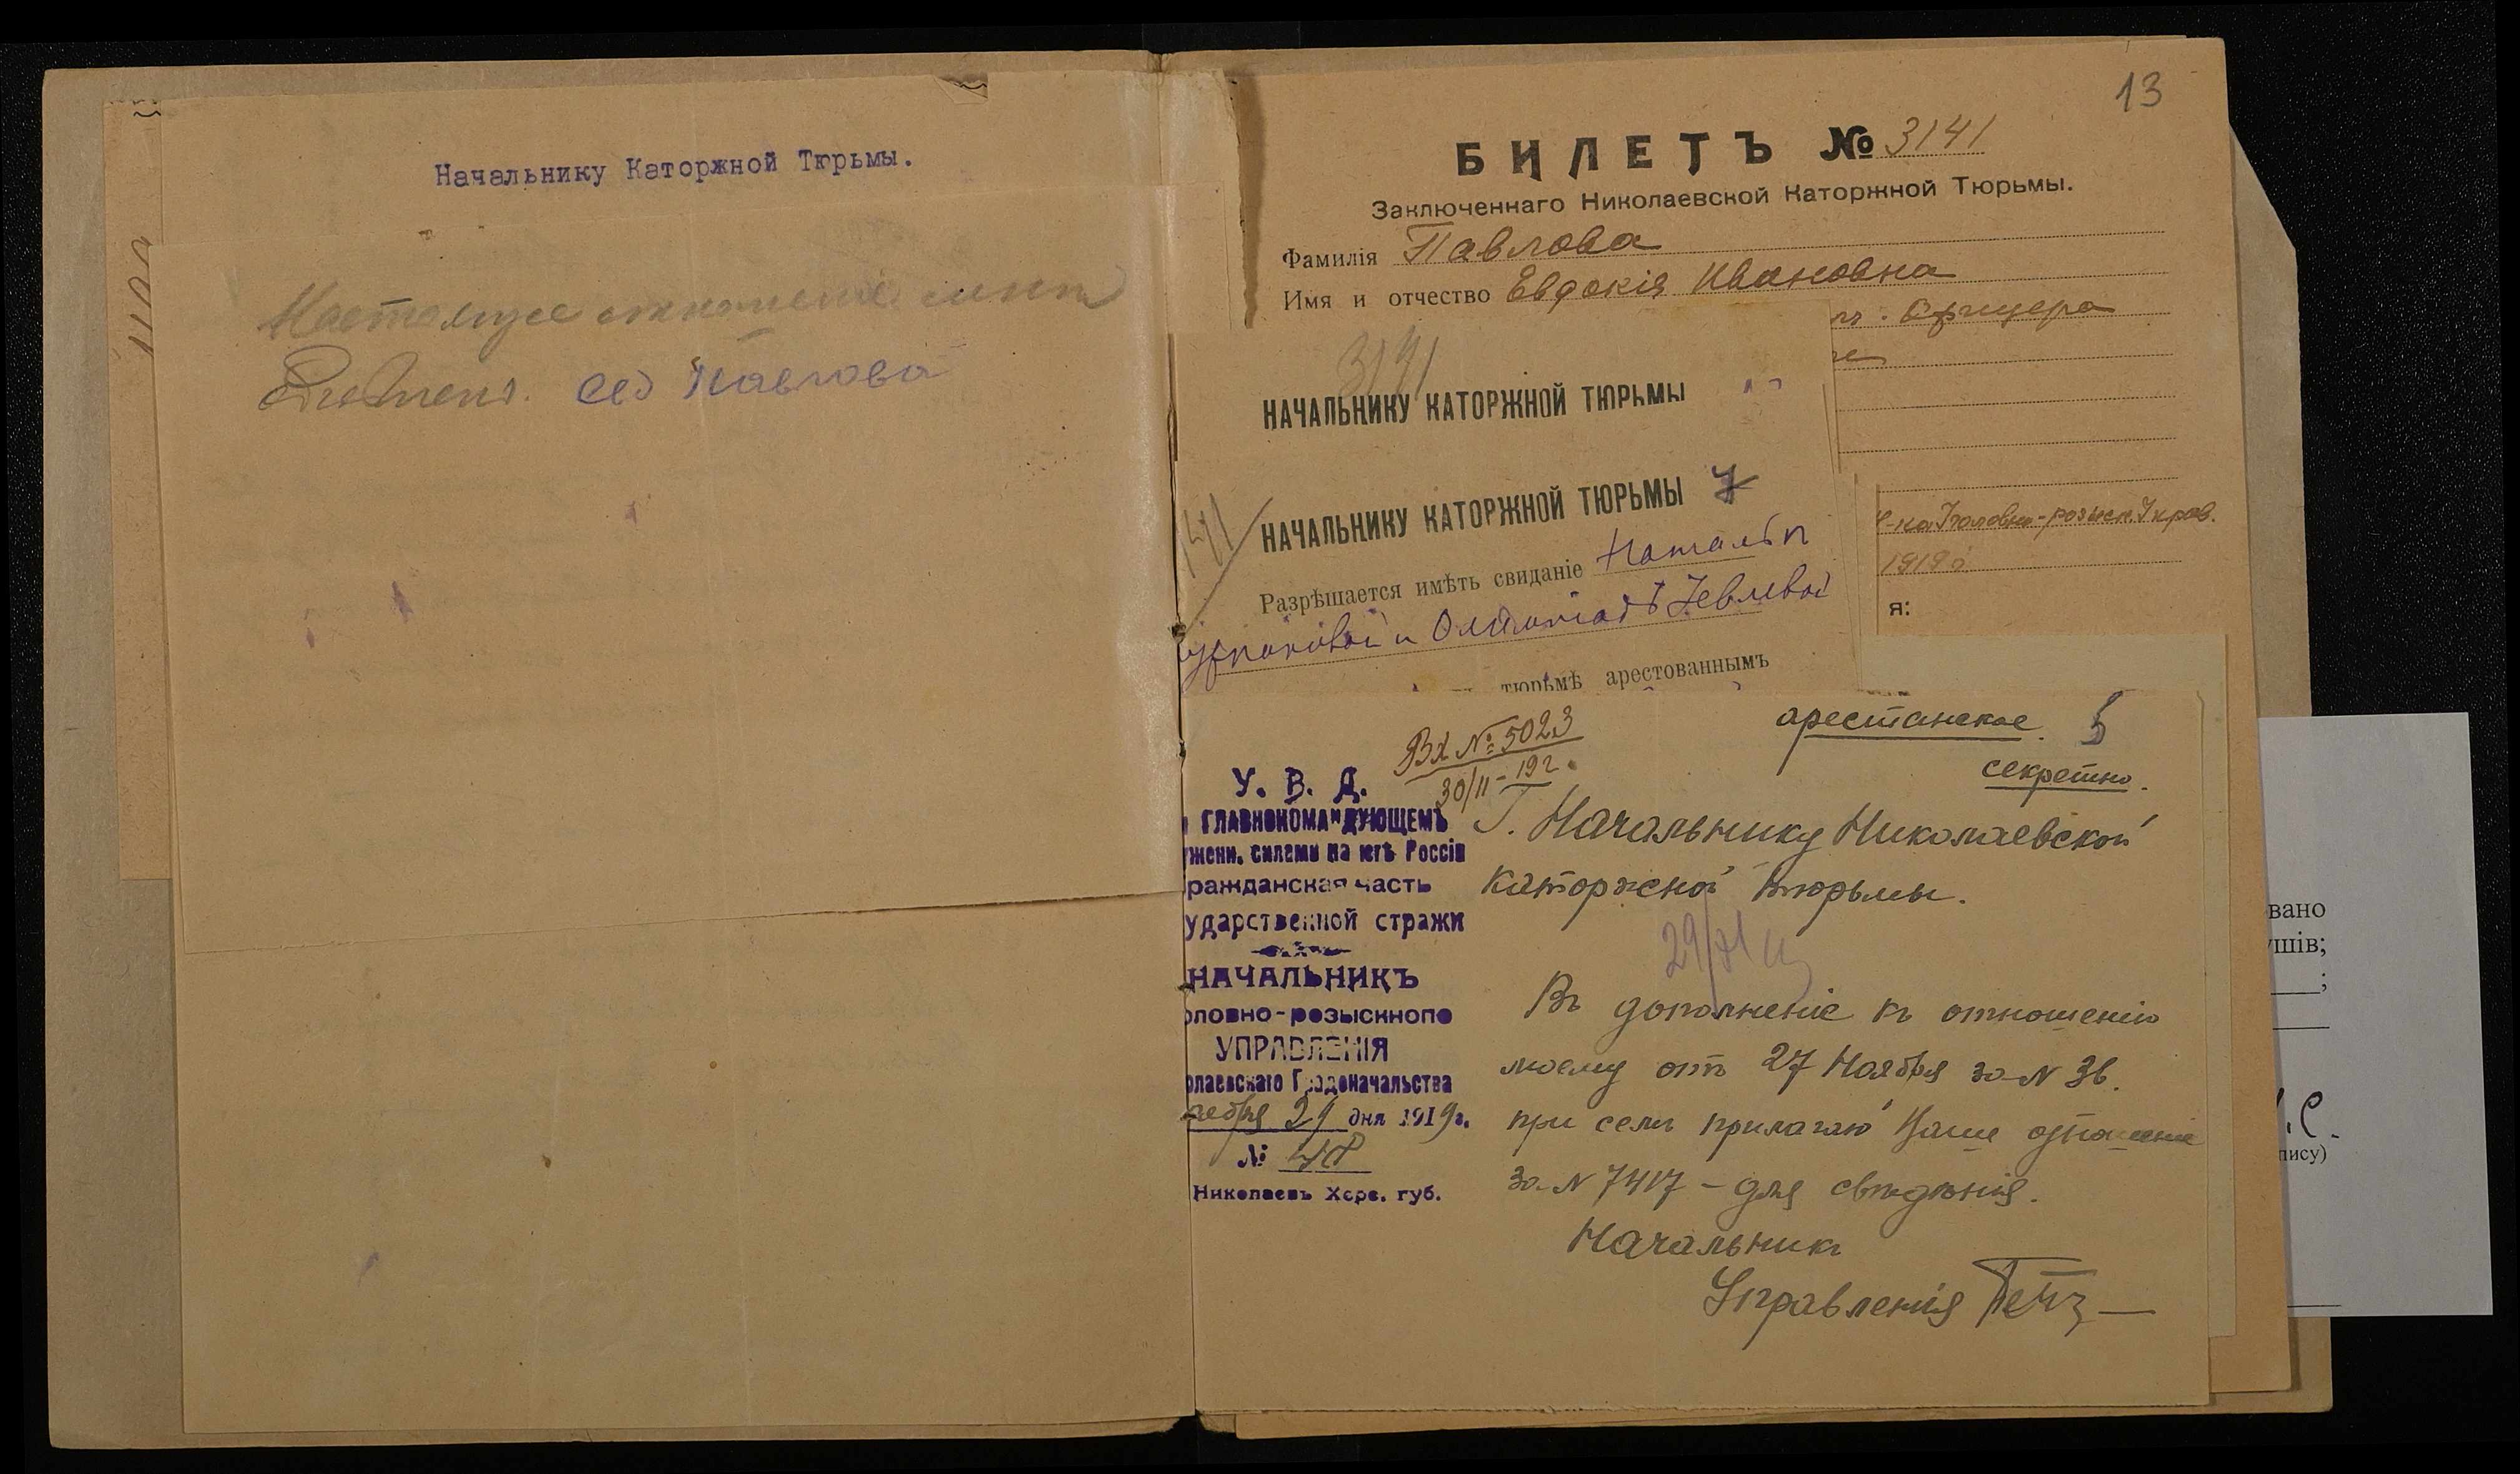 Начальнику Каторжной Тюрьмы.
Настоящее отношение мнѣ
объявлено. Е Павлова
13
БИЛЕТЪ № 3141
Заключеннаго Николаевской Каторжной Тюрьмы.
Фамилія Павлова
Имя и отчество Евдокія Ивановна
офицера
3141
НАЧАЛЬНИКУ КАТОРЖНОЙ ТЮРЬМЫ
НАЧАЛЬНИКУ КАТОРЖНОЙ ТЮРЬМЫ 7
Разрѣшается имѣть свиданіе Натальи
и Олимпіадѣ
тюрьмѣ арестованнымъ
-на Уголовно-розыск. Управ.
1919 г.
я:
арестанское. 5
секретно.
Вх № 5023
30/11-19 г.
У. В. Д.
ГЛАВНОКОМАНДУЮЩЕМЪ
жени. силами на югѣ Россіи
ражданская часть
ударственной стражи
НАЧАЛЬНИКЪ
оловно-розыскного
УПРАВЛЕНІЯ
олаевскаго Градоначальства
ября 29 дня 1919 г.
№ 48
Николаевъ Херс. губ.
Г. Начальнику Николаевской
Каторжной тюрьмы.
29/XI
Въ дополненіе къ отношенію
моему отъ 27 Ноября за N 36.
при семъ прилагаю Ваше отношеніе
за N 7417 – для свѣдѣнія.
Начальникъ
Управленія
вано
ушів;
;
пису)